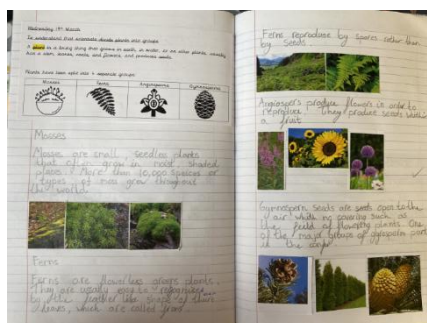 Wednesday 15th March
To understand that scientists divide plants into groups
A plant is a living thing that grows in earth, in water, or on other plants, usually
has a stem, leaves, roots, and flowers, and produces seeds.
Plants have been split into 4 separate groups.
Mosses Ferns Angiosperms Gymnosperms
Mosses
Mosses are small, seedless plants
that often grow in moist, shaded
places. More than 10,000 species or
types of moss grow throughout
the world.
Ferns
Ferns are flowerless green plants.
They are usually easy to recognise
by the feather like shape of their
leaves, which are called
Ferns reproduce by spores rather than
by seeds.
Angiosperms produce flowers in order to
reproduce. They produce seeds within
a fruit.
Gymnosperm seeds are seeds open to the
air with no covering such as
the of flowering plants. One
of the major groups of
is the